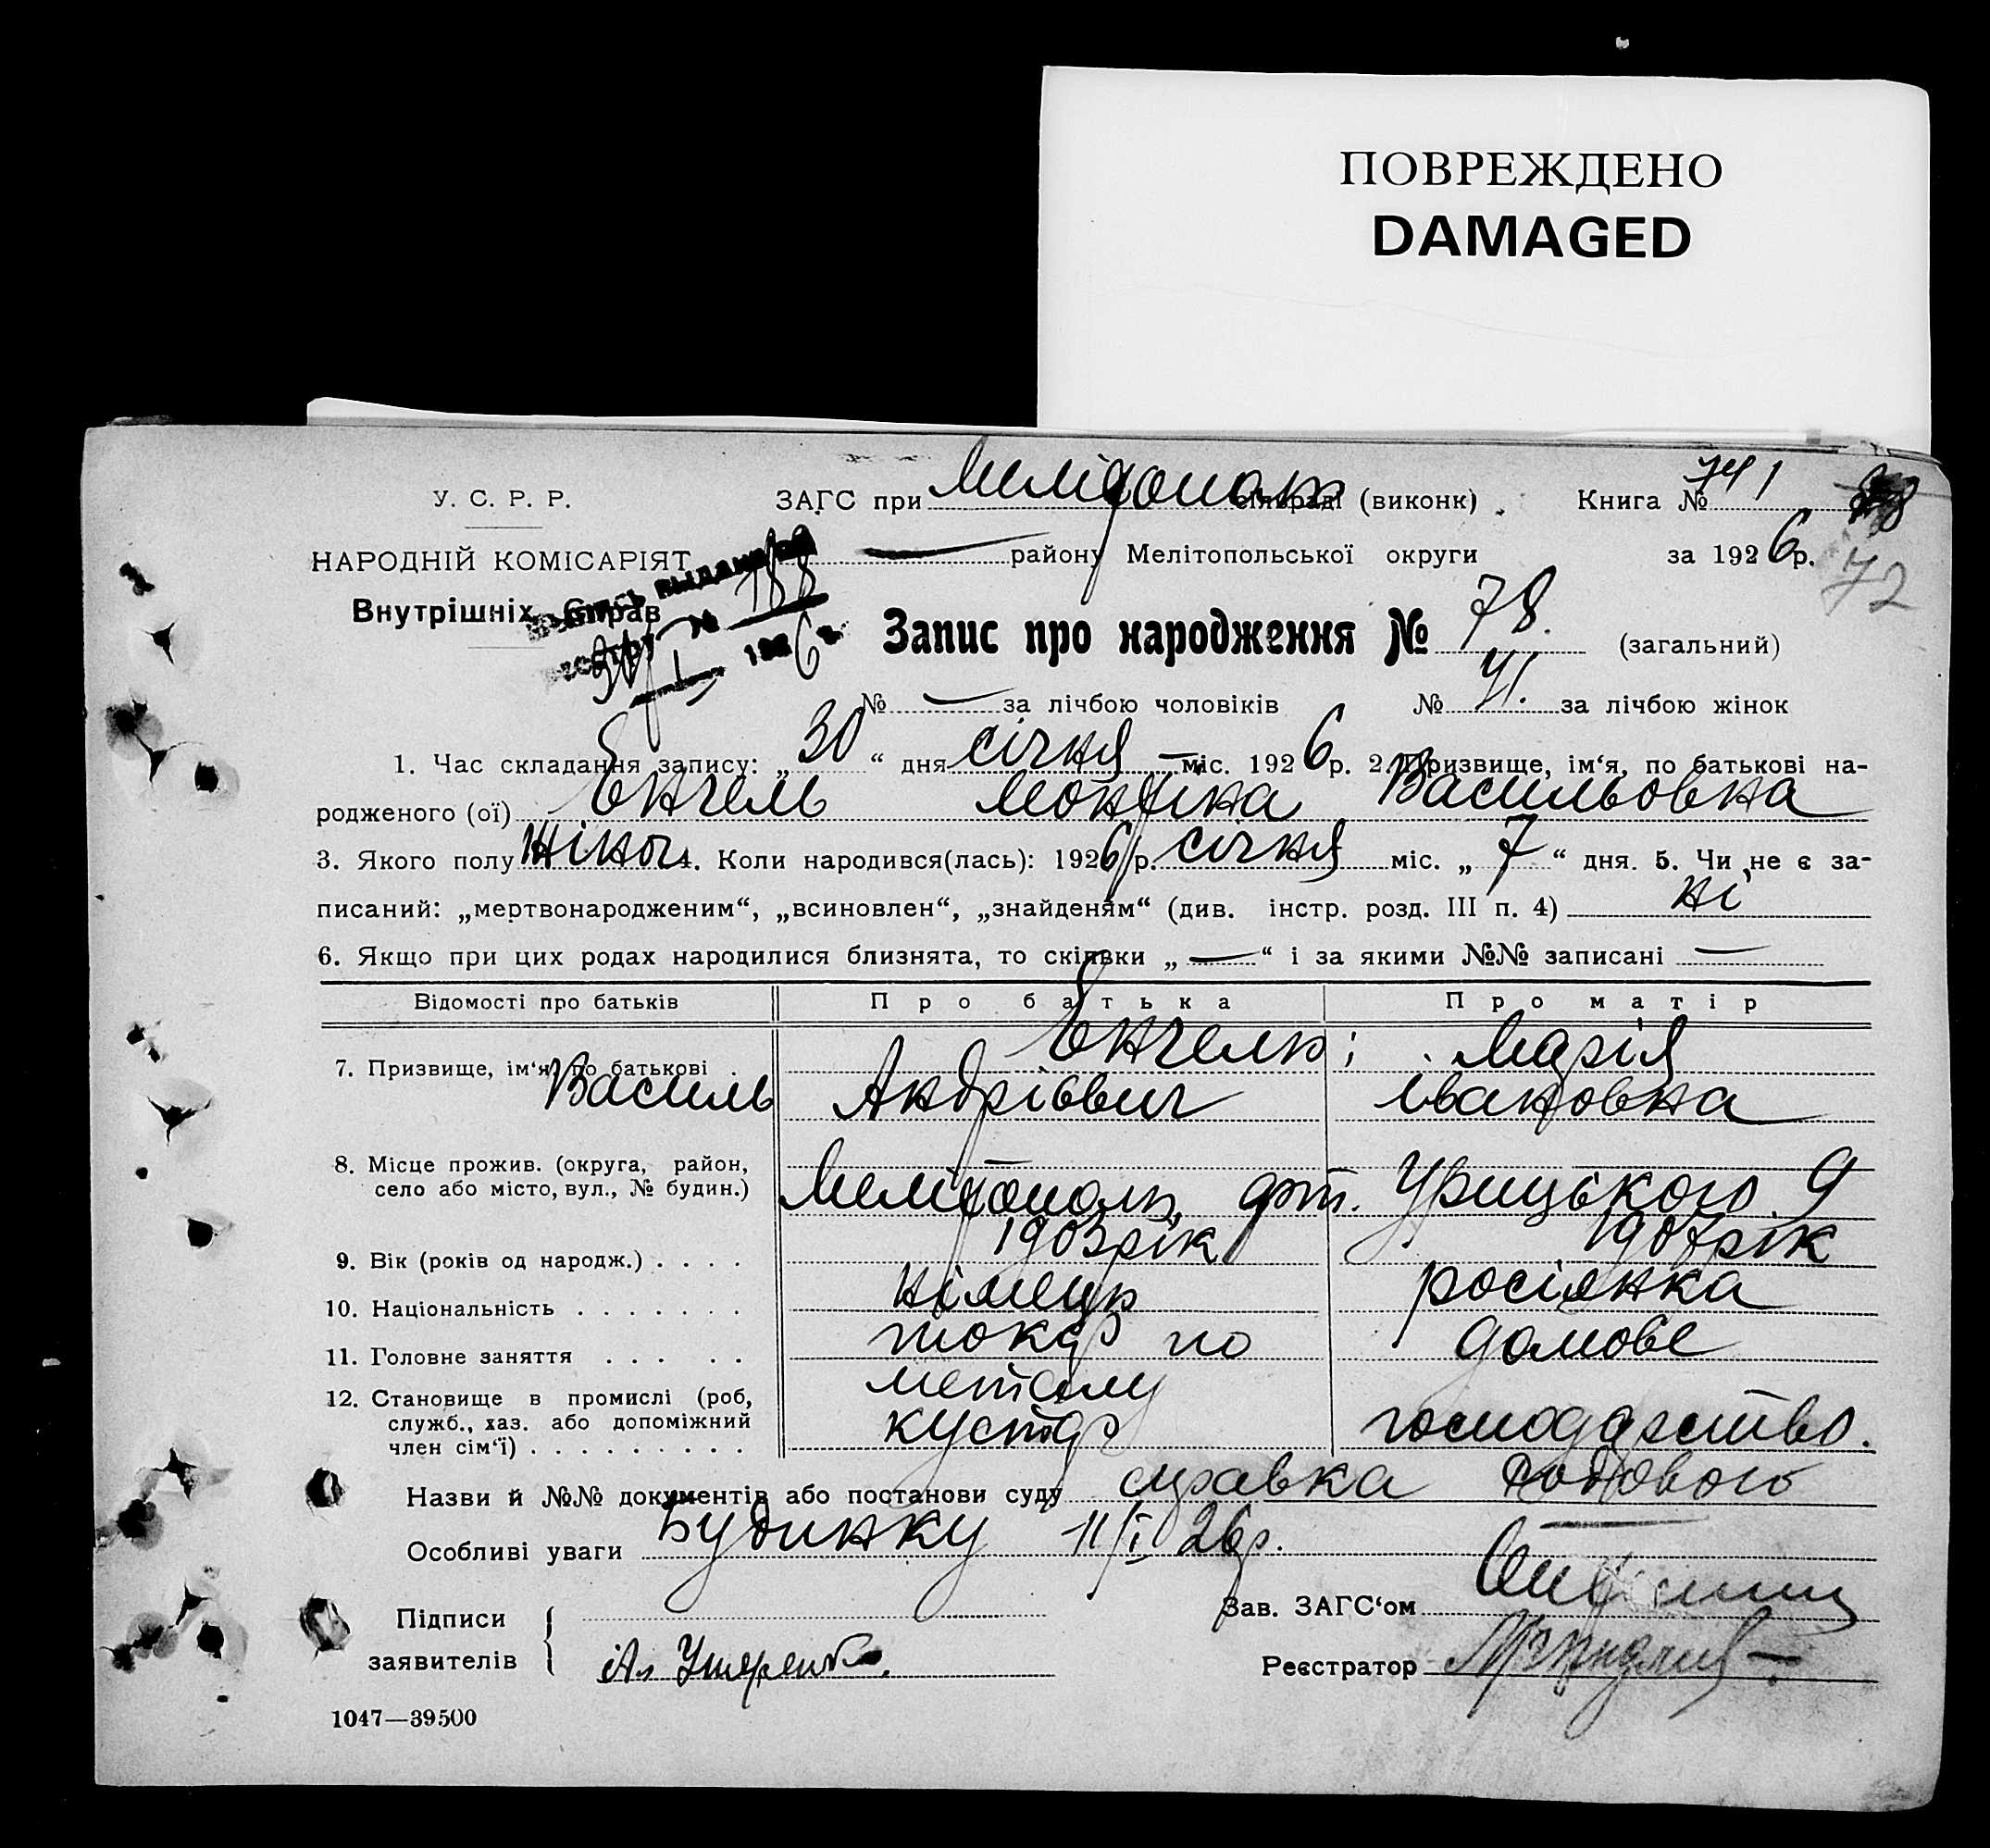 ПОВРЕЖДЕНО
DAMAGED
У. С. Р. Р.
ЗАГС при Мелітополь сільраді (виконк) Книга № 741 78
НАРОДНІЙ КОМІСАРІЯТ — району Мелітопольської округи за 1926 р. 72
Внутрішніх Справ
выдана № 188
1926 г.
Запис про народження № 78. (загальний)
№ — за лічбою чоловіків № 41. за лічбою жінок
1. Час складання запису: „30“ дня січня міс. 1926 р. 2. Призвище, ім‘я, по батькові на-
родженого (ої) Енгель Моніка Васильовна
3. Якого полу жіноч 4. Коли народився(лась): 1926 р. січня міс. „7“ дня. 5. Чи не є за-
писаний: „мертвонародженим“, „всиновлен“, „знайденям“ (див. інстр. розд. III п. 4) ні
6. Якщо при цих родах народилися близнята, то скільки „—“ і за якими №№ записані —
Відомості про батьків Про батька Про матір
7. Призвище, ім‘я, по батькові . Енгель; Марія
Василь Андрієвич Івановна
8. Місце прожив. (округа, район,
село або місто, вул., № будин.) Мелітополь, Урицького 9
9. Вік (років од народж.) . . . . 1903 рік 1907 рік
10. Національність . . . . . . . німець росіянка
11. Головне заняття . . . . . токар по домове
металу
12. Становище в промислі (роб,
служб., хаз. або допоміжний
член сім‘ї) . . . . . . . . . кустар господарство.
Назви й №№ документів або постанови суду справка Родового
Особливі уваги Будинку 11/I 26 р.
Підписи
заявителів
Зав. ЗАГС‘ом
Реєстратор
1047—39500